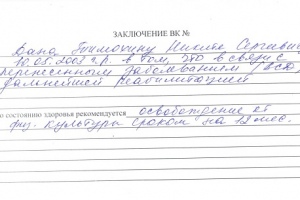 ЗАКЛЮЧЕНИЕ ВК №
Дана Тимохину Никите Сергеевичу
10.05.2003 г.р. в том, что в связи с
перенесенным заболеванием
дальнейшей реабилитацией
о состоянию здоровья рекомендуется освобождение от
физ. культуры сроком на 12 мес.